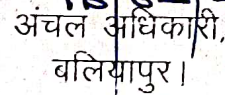 अंचल अधिकारी,
बलियापुर।